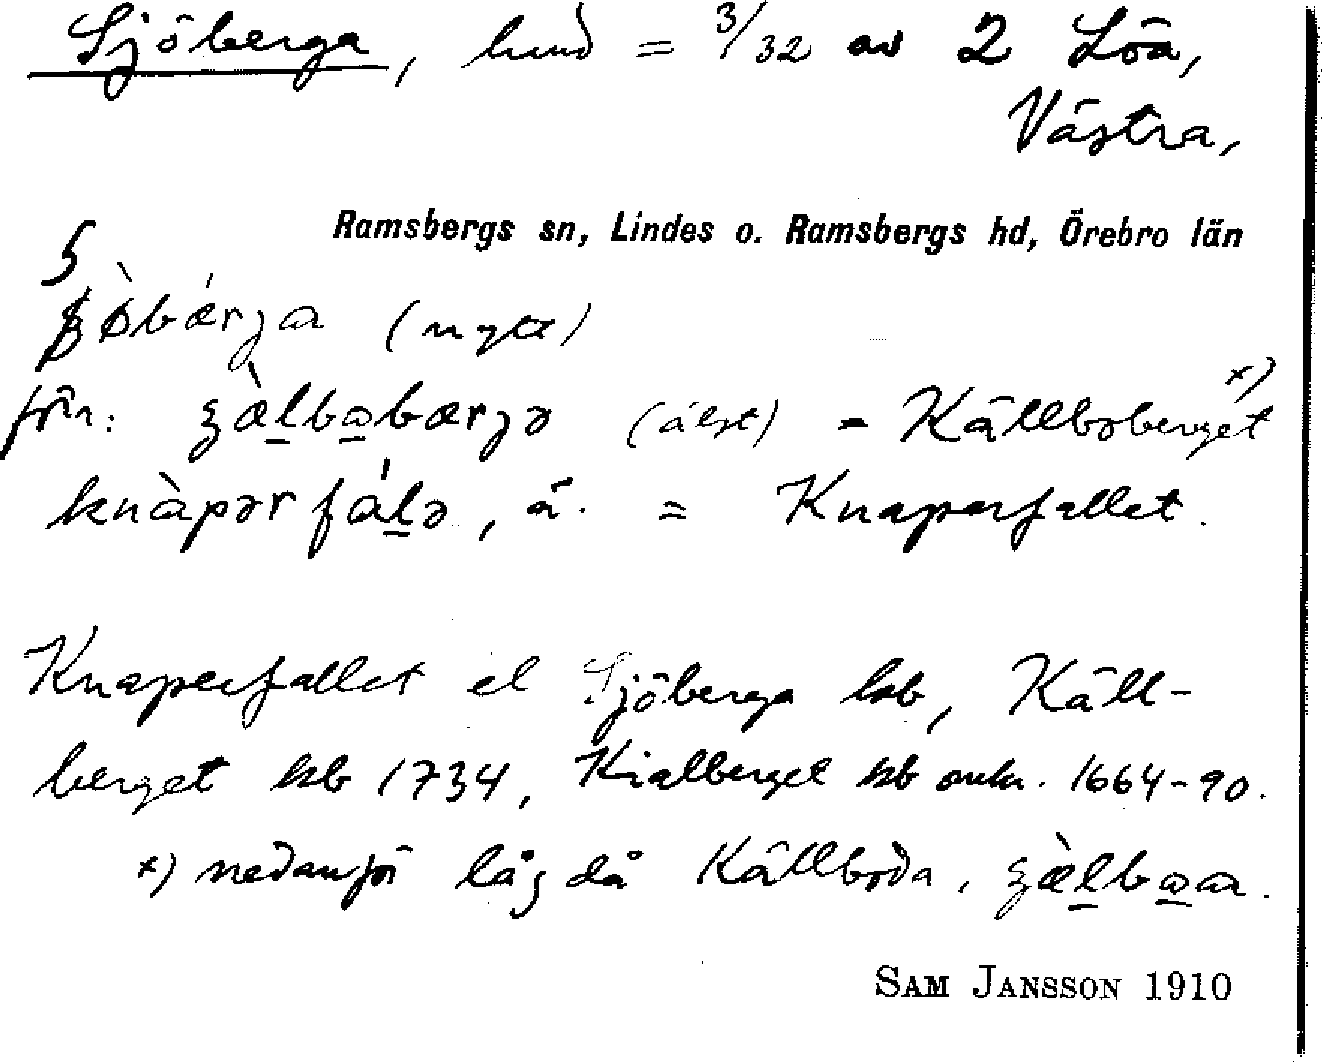 Sjöberga, hmd = 3/32 av 2 Löa,
Västra,
Ramsbergs sn, Lindes o. Ramsbergs hd, Örebro län
(nytt)
förr: (älst) = Källboberget x)
knàpər fálə, ä. = Knaperfallet.
Knaperfallet el Sjöberga lsb, Käll-
berget lsb 1734, Kialberget lsb 1664-90.
x) nedanför låg då Källboda,
SAM JANSSON 1910